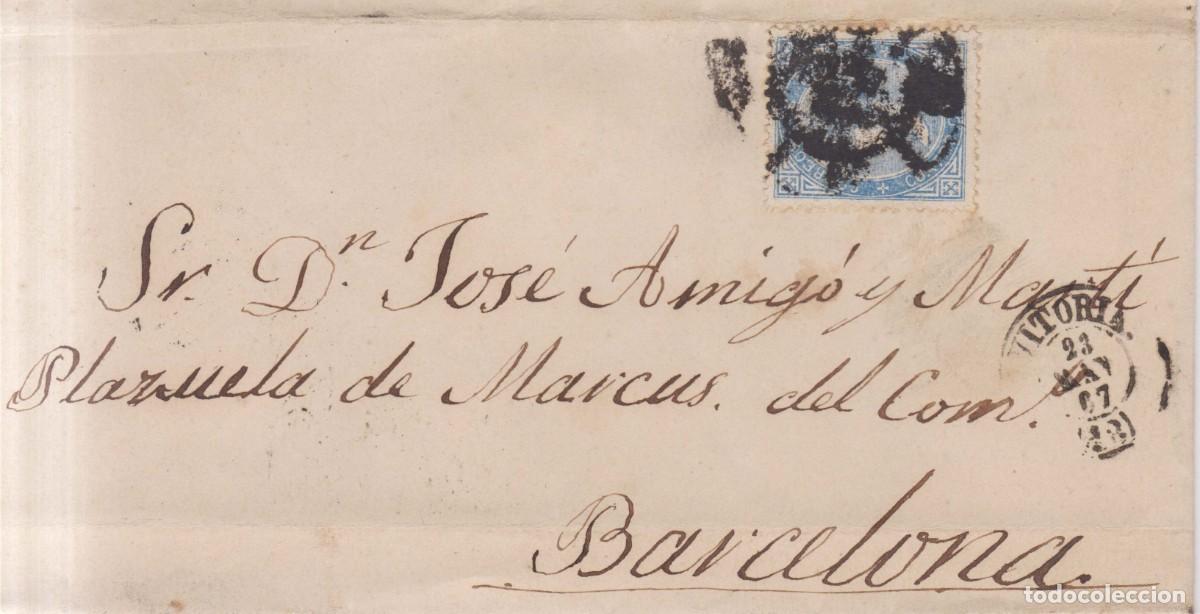 Sr. Dn José Amigó y Martí
Plazuela de Marcus. del Como.
Barcelona.
VITORIA.
23
MAY
67
(18)
todocoleccion